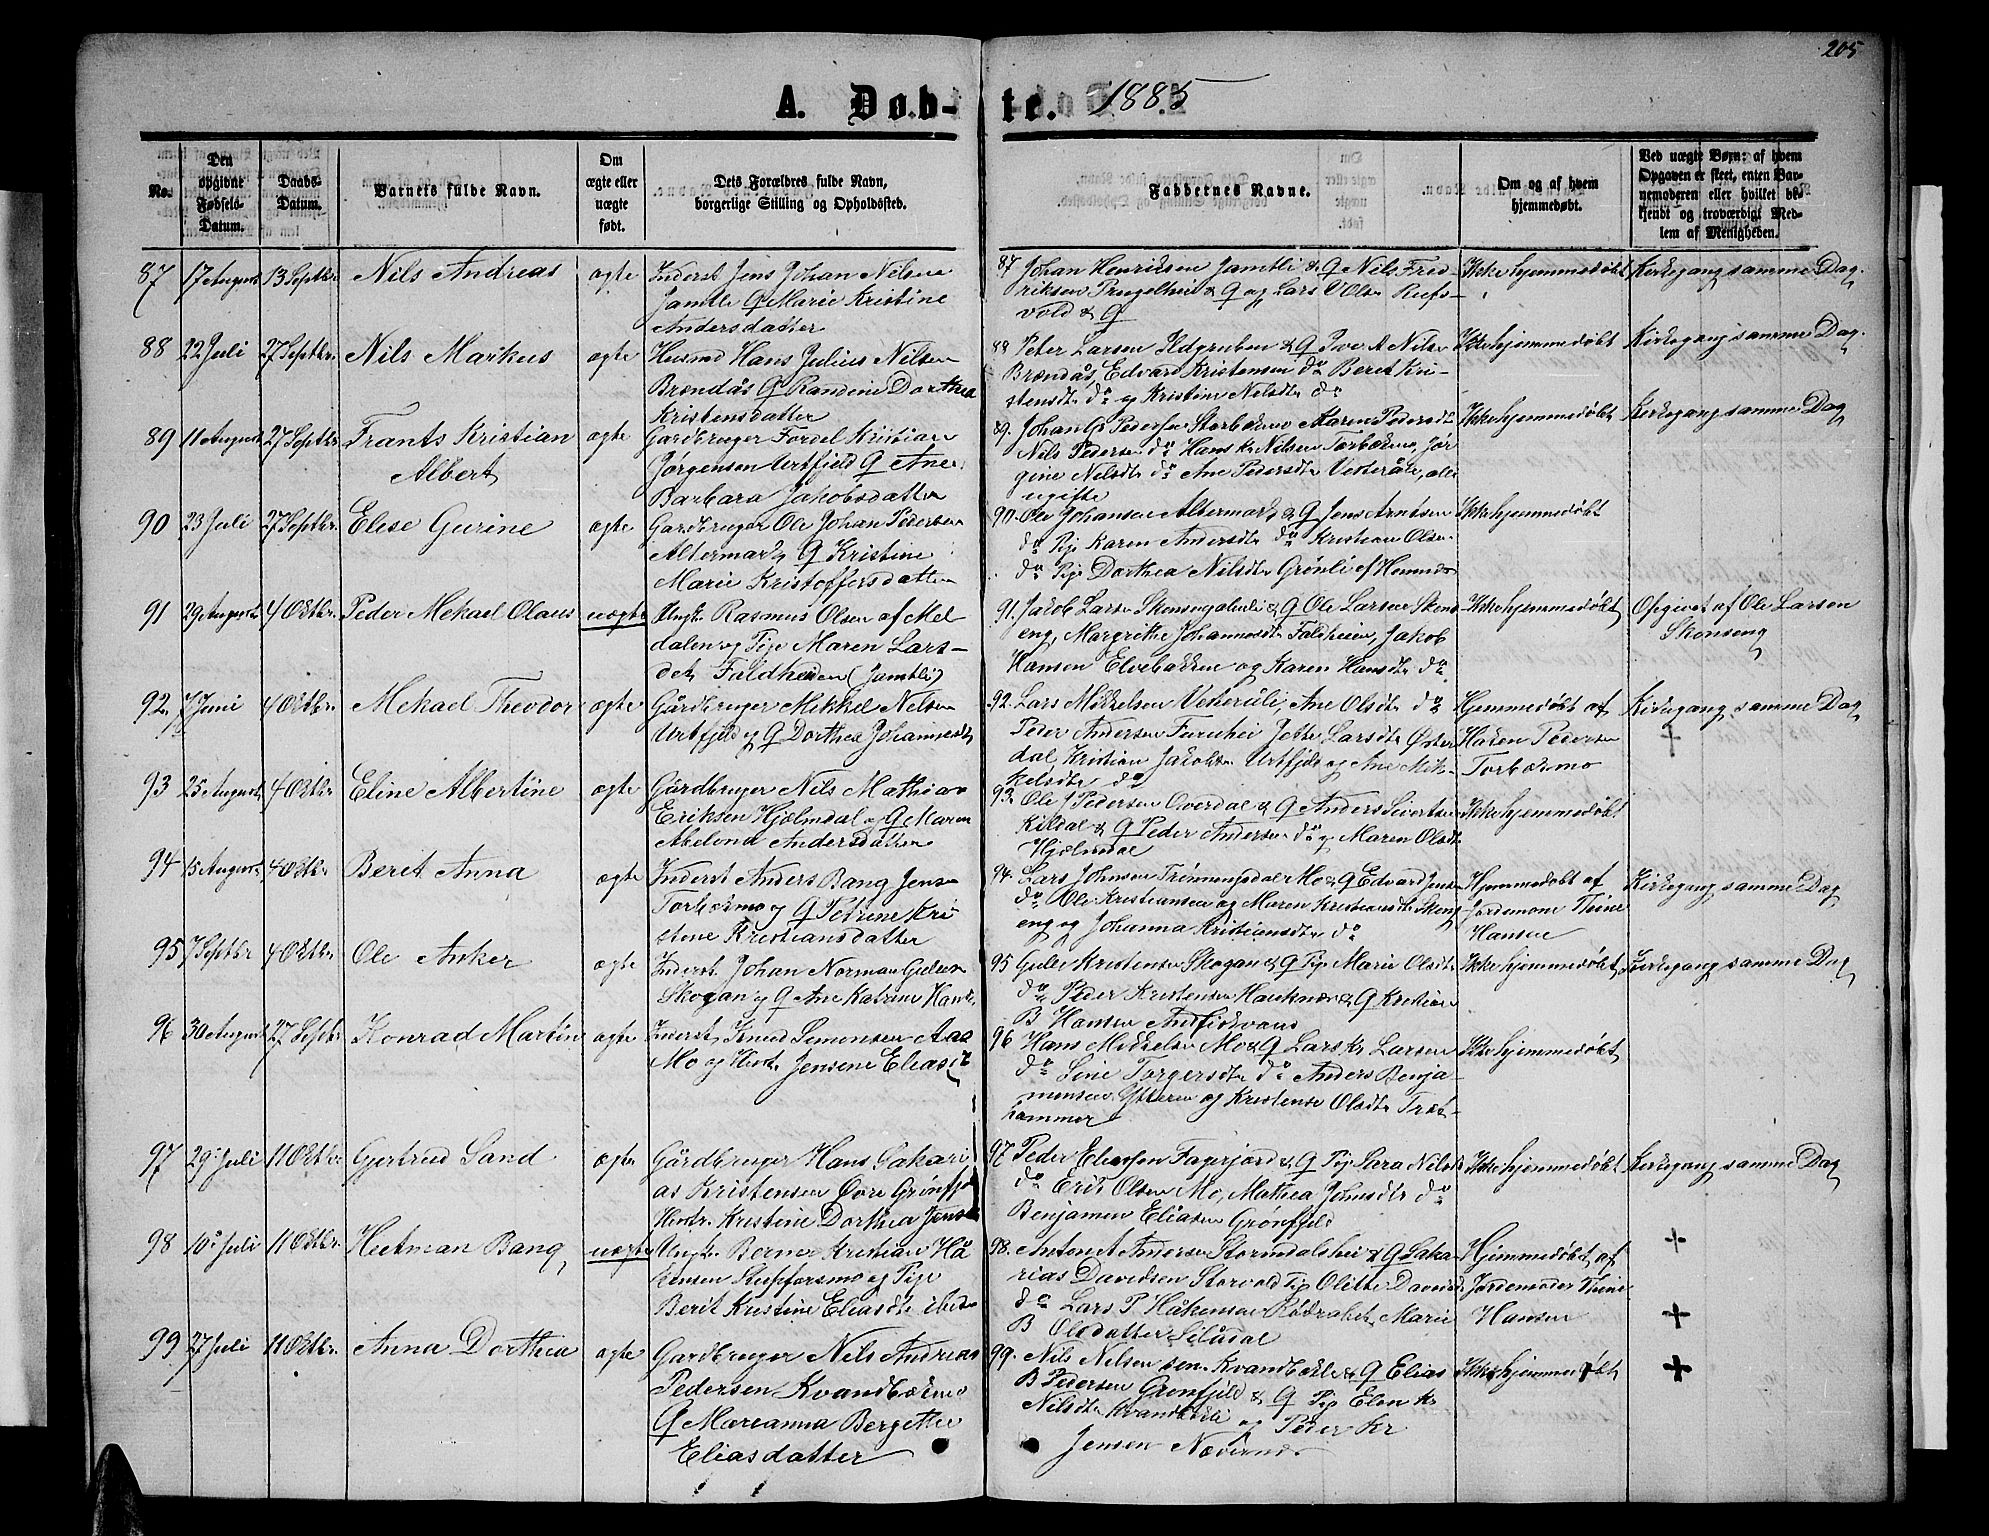 205
A. Døb-te. 1885
No.
Den opgivne Fødsels-Datum.
Daabs-Datum.
Barnets fulde Navn.
Om ægte eller uægte født.
Dets Forældres fulde Navn, borgerlige Stilling og Opholdssted.
Faddernes Navne.
Om og af hvem hjemmedøbt.
Ved uægte Børn: af hvem Opgaven er skeet, enten Barnemoderen eller hvilket bekjendt og troværdigt Medlem af Menigheden.
87 17 August 13 Septbr. Nils Andreas ægte Inderst Jens Johan Nilsen
Jamtli & Marie Kristine
Andersdatter
87 Johan Henriksen Jamtli & Q Nils Fred-
riksen & Q og Lars Olsen
vold & Q
Ikke hjemmedøbt Kirkegang samme Dag
88 22 Juli 27 Septbr. Nils Markus ægte Husmd Hans Julius Nilsen
Brændås Q Randine Dorthea
Kristensdatter
88 Peter Larsen Ildgruben & Q A Nilsen
Brændås, Edvard Kristensen do Beret Kri-
stensdtr do og Kristine Nilsdtr do
Ikke hjemmedøbt Kirkegang samme Dag.
89 11 August 27 Septbr. Frants Kristian
Albert
ægte Gardbruger Fordel Kristian
Jørgensen Urtfjeld Q Ane
Barbara Jakobsdatter
89. Johan Pedersen Storbækmo Maren Pedersdtr
Nils Pedersen do Hans Kr Nilsen Torbækmo, Jør
gine Nilsdtr do Ane Pedersdtr Vesteråli, alle
ugifte
Ikke hjemmedøbt Kirkegang samme Dag
90 23 Juli 27 Septbr. Elise Gurine ægte Gardbruger Ole Johan Pedersen
Altermark Q Kristine
Marie Kristoffersdatter
90. Ole Johansen Altermark & Q Jens Arntsen
do Pige Karen Andersdtr do Kristian Olsen
do Pige Dorthea Nilsdtr Grønli af Hemnes
Ikke hjemmedøbt
91 29 August 4 Oktbr. Peder Mekael Olaus uægte Ungk. Rasmus Olsen af Mel
dalen og Pige Maren Lars-
dtr Faldheien (Jamtli)
91. Jakob Larsen Skonsengalmli & Q Ole Larsen Skons
eng, Margrithe Johannesdtr Faldheien, Jakob
Hansen Elvebakken og Karen Hansdtr do
Ikke hjemmedøbt Opgivet af Ole Larsen
Skonseng
92. 7 Juni 4 Oktbr. Mekael Theodor ægte Gårdbruger Mikkel Nilsen
Urtfjeld og Q Dorthea Johannesdtr
92. Lars Mikkelsen Veteråli, Ane Olsdtr do
Peder Andersen Furuhei Jette Larsdtr Øster
dal, Kristian Jakobsen Urtfjeld og Ane Mik-
kelsdtr do
Hjemmedøbt af
Haken Pedersen
Torbækmo
Kirkegang samme Dag
+
93 25 August 4 Oktbr. Eline Albertine ægte Gårdbruger Nils Mathias
Eriksen Hjelmdal og Q Maren
Abelona Andersdatter
93. Ole J Pedersen Overdal & Q Anders Sivertsen
Kildal & Q Peder Andersen do og Maren Olsdtr
Hjælmdal
Ikke hjemmedøbt
94 15 August 4 Oktbr. Berit Anna ægte Inderst Anders Bang Jensen
Torbækmo og Q Petrine Kri
stene Kristiansdatter
94. Lars Johnsen Trønmensdal Mo & Q Edvard Jensen
do Ole Kristiansen og Maren Kristiansdtr Skons
eng og Johanna Kristiansdtr do
Hjemmedøbt af
Jordemone Thrine
Hansen
Kirkegang samme Dag
95 7 Septbr 4 Oktbr. Ole Anker ægte Inderst Johan Norman Gulesen
Skogan og Q Ane Katrine Hansdtr.
95 Gule Kristensen Skogan & Q Pige Marie Olsdtr
do Peder Kristensen Hauknes & Q Kristian
B Hansen Andfiskvand
Ikke hjemmedøbt Kirkegang samme Dag
96 30 August 27 Septbr Konrad Martin ægte Inderst Knud Simonsen Aas
Mo og Hustr. Jensine Eliasdtr
96 Hans Mikkelsen Mo & Q Lars Kr Larsen
do Sine Torgersdtr do Anders Benja-
mensen Ytteren og Kristense Olsdtr Træs-
hammer
Ikke hjemmedøbt
97 29 Juli 11 Oktbr. Gjertrud Sand ægte Gårdbruger Hans Sakari
as Kristensen Øvre Grønfjel
Hustr. Kristine Dorthea Jensd
97 Peder Eliassen Fagerjord & Q Pige Sara Nilsdtr
do Erik Olsen Mo, Mathea Johnsdtr do
Benjamen Eliasen Grønfjeld
Ikke hjemmedøbt Kirkegang samme Dag
98 10 Juli 11 Oktbr. Hectman Bang uægte Ungk. Berner Kristian Hå
kensen Stupforsmo og Pige
Berit Kristine Eliasdtr ibid
98. Anton A Andersen Stormdalshei & Q Saka
rias Davidsen Storvold Pige Olette Davidsd
do Lars P Håkensen Rødvatnet, Marie
B Olsdatter
Hjemmedøbt af
Jordemoder Thrine
Hansen
+
+
99 27 Juli 11 Oktbr. Anna Dorthea ægte Gardbruger Nils Andreas
Pedersen Kvandbækmo
Q Mareanna Bergette
Eliasdatter
99. Nils Nilsen sen. Kvandbækli & Q Elias
B Pedersen Grønfjeld & Q Pige Elen Kr
Nilsdtr Kvandbækli og Peder Kr
Jensen Nævernes
Ikke hjemmedøbt
+